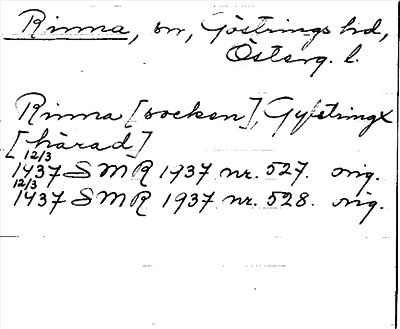 Rinna, sn, Göstrings hd,
Österg. l.
Rinna [socken], Gylstringx
[härad]
12/3
1437 SMR 1937 nr. 527. orig.
12/3
1437 SMR 1937 nr. 528. orig.